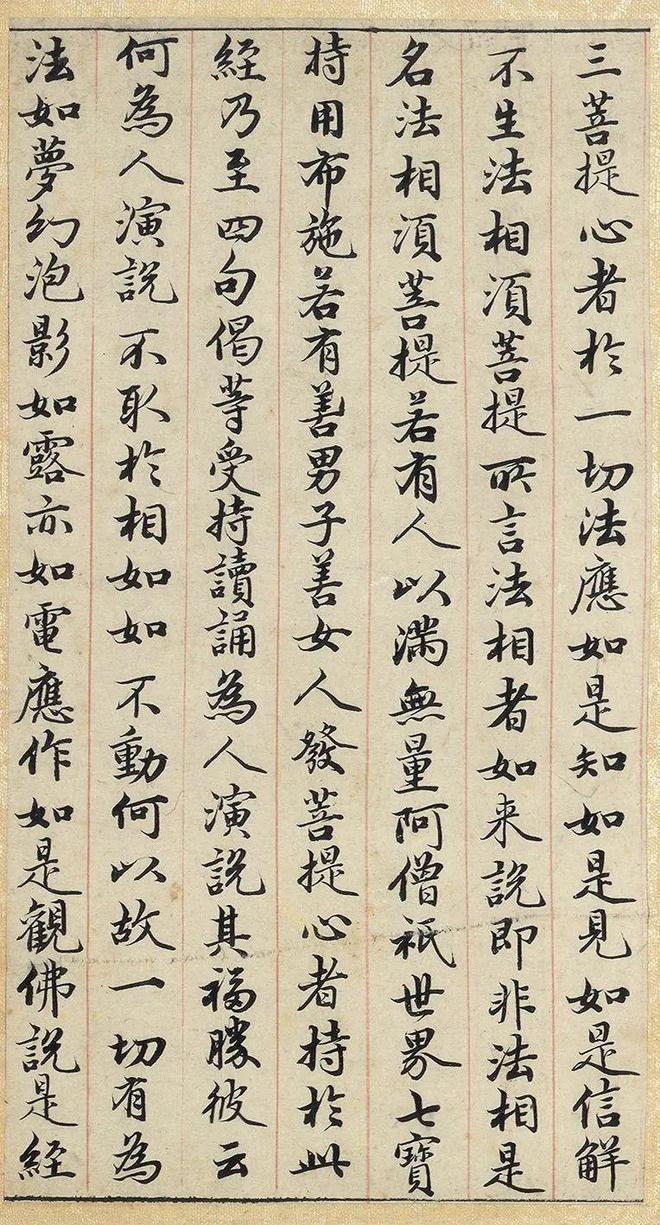 三菩提心者於一切法應如是知如是見如是信解
不生法相須菩提所言法相者如来說即非法相是
名法相須菩提若有人以滿無量阿僧祇世界七寶
持用布施若有善男子善女人發菩提心者持於此
經乃至四句偈等受持讀誦為人演說其福勝彼云
何為人演說不取於相如如不動何以故一切有為
法如夢幻泡影如露亦如電應作如是觀佛說是經